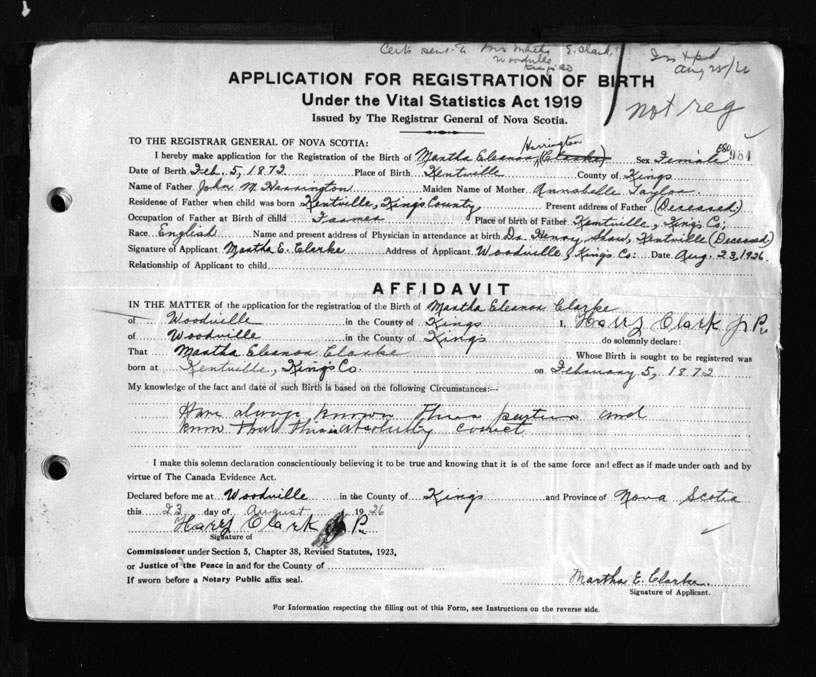 Certs sent to Mrs Martha E. Clark,
Woodville
Kings Co
Aug 25/26
not reg
APPLICATION FOR REGISTRATION OF BIRTH
Under the Vital Statistics Act 1919
Issued by The Registrar General of Nova Scotia.
984
TO THE REGISTRAR GENERAL OF NOVA SCOTIA:
Harrington
I hereby make application for the Registration of the Birth of Martha Eleanor (Clarke) Sex Female
Date of Birth Feb. 5, 1872. Place of Birth Kentville County of Kings
Name of Father John M Harrington Maiden Name of Mother Annabelle Taylor
Residence of Father when child was born Kentville, Kings County, Present address of Father (Deceased)
Occupation of Father at Birth of child Farmer Place of birth of Father Kentville, Kings Co;
Race English Name and present address of Physician in attendance at birth Dr. Henry Shaw, Kentville (Deceased)
Signature of Applicant Martha E. Clarke Address of Applicant Woodville, Kings Co: Date Aug. 23, 1926.
Relationship of Applicant to child
AFFIDAVIT
IN THE MATTER of the application for the registration of the Birth of Martha Eleanor Clarke
of Woodville in the County of Kings I, Harry Clark J P.
of Woodville in the County of Kings do solemnly declare:
That Martha Eleanor Clarke Whose Birth is sought to be registered was
born at Kentville, Kings Co. on February 5, 1872
My knowledge of the fact and date of such Birth is based on the following Circumstances:—
Have always known these parties and
know that this is absolutely correct
I make this solemn declaration conscientiously believing it to be true and knowing that it is of the same force and effect as if made under oath and by
virtue of The Canada Evidence Act.
Declared before me at Woodville in the County of Kings and Province of Nova Scotia
this 23 day of August 1926
Harry Clark J P.
Signature of
Commissioner under Section 5, Chapter 38, Revised Statutes, 1923,
or Justice of the Peace in and for the County of
If sworn before a Notary Public affix seal.
Martha E. Clarke.
Signature of Applicant.
For Information respecting the filling out of this Form, see Instructions on the reverse side.